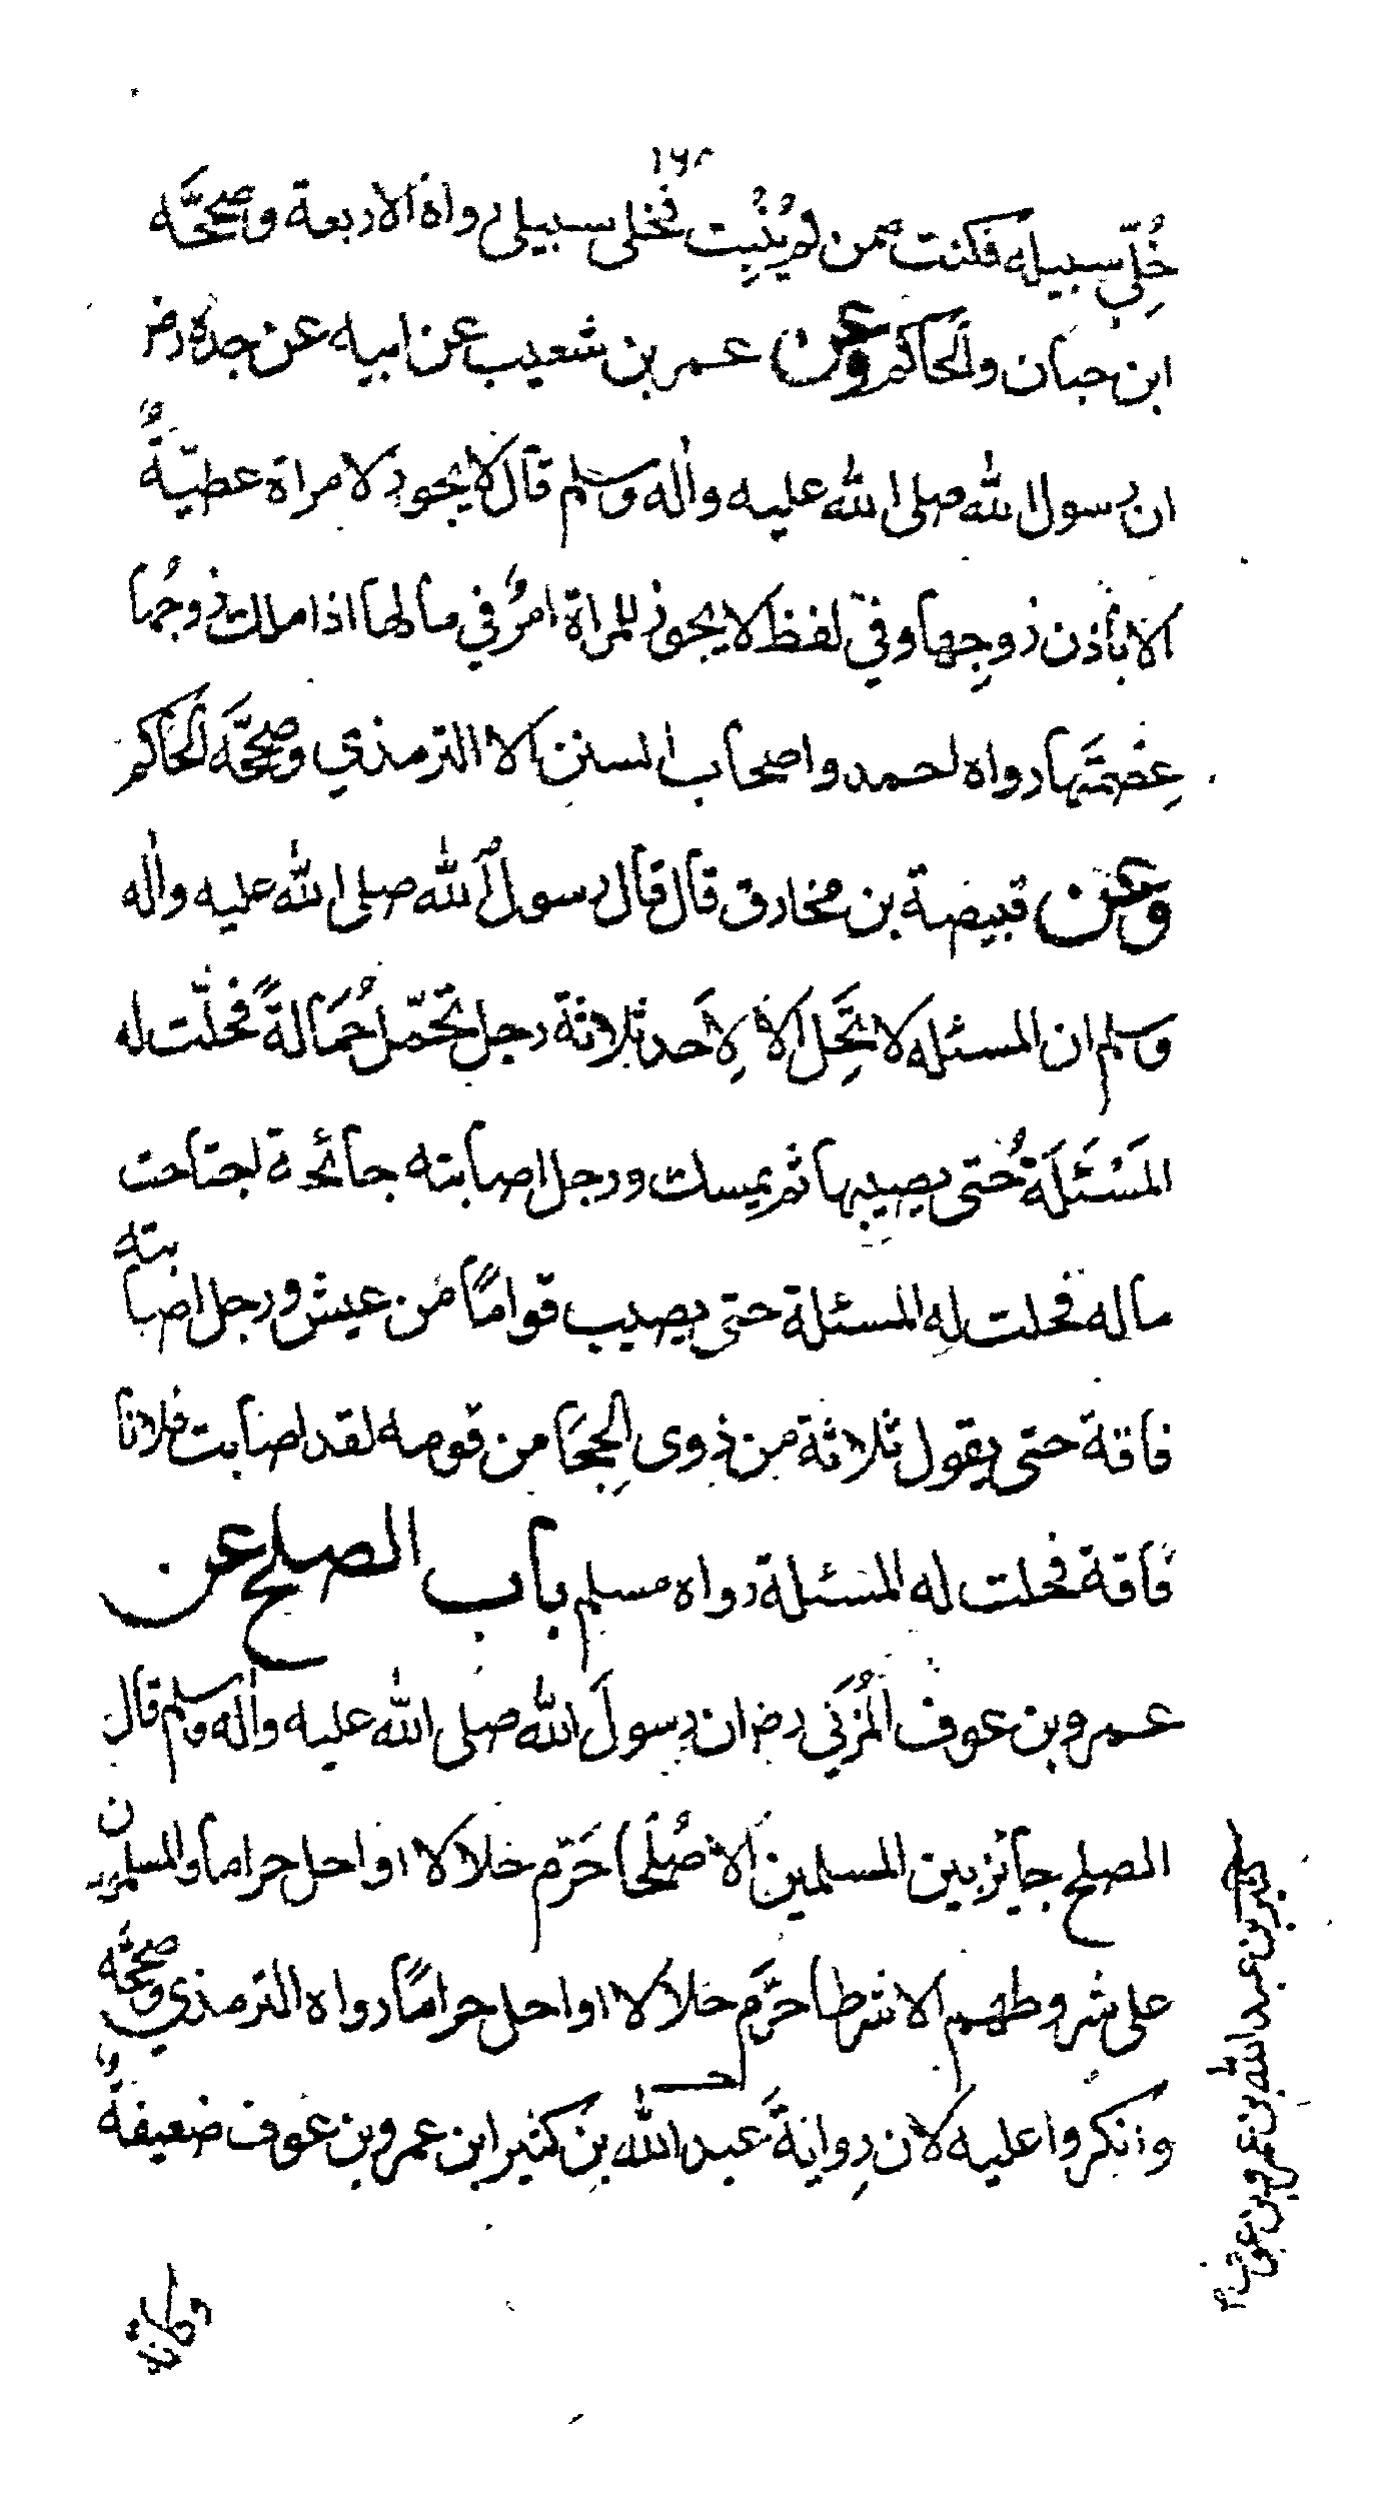 ١٦٢
خُلِّيَ سبيله فكنت ممن لم يُنْبِت فخلى سبيلى رواه الاربعة وصححَّه
ابن حبان والحاكم وعن عمر بن شعيب عن ابيه عن جده رض
ان رسول الله صلى الله عليه واله وسلم قال لا يجوز لامراة عطيّةٌ
الا باذن زوجِها وفي لفظ لا يجوز للمراة امرٌ في مالها اذا ملك زوجُها
عِصْمَتَها رواه احمد واصحاب السنن الا الترمذي وصححَّه الحاكم
وعن قبيصة بن مخارق قال قال رسول الله صلى الله عليه واله
وسلم ان المسئله لا تَحِل الا لِاَحد ثلاثة رجل تحَمّل حُمَالةً فحلّت له
المَسْئَلَةُ حتى يصيبها ثم يمسك ورجل اصابته جائحة اجتاحت
ماله فحلت له المسئلة حتى يصيب قوامًا من عيش ورجل اصابته
فاقة حتى يقول ثلاثة من ذوى الحِجَا من قومه لقد اصابت فلانا
فاقة فحلت له المسئلة رواه مسلم باب الصلح عن
عمرو بن عوف المُزَني رض ان رسولَ الله صلى الله عليه واله وسلم قال
الصلح جايز بين المسلمين الا صُلْحًا حَرّم حلالا او احل حراما والمسلمون
على شروطهم الا شرطا حَرَّم حلالا او احل حرامًا رواه الترمذي وصححَّه
وانكروا عليه لان رِوايةَ عبد الله بن كثير ابن عمرو بن عوف ضعيفةٌ
بن عبد الله بن عمرو بن عوف